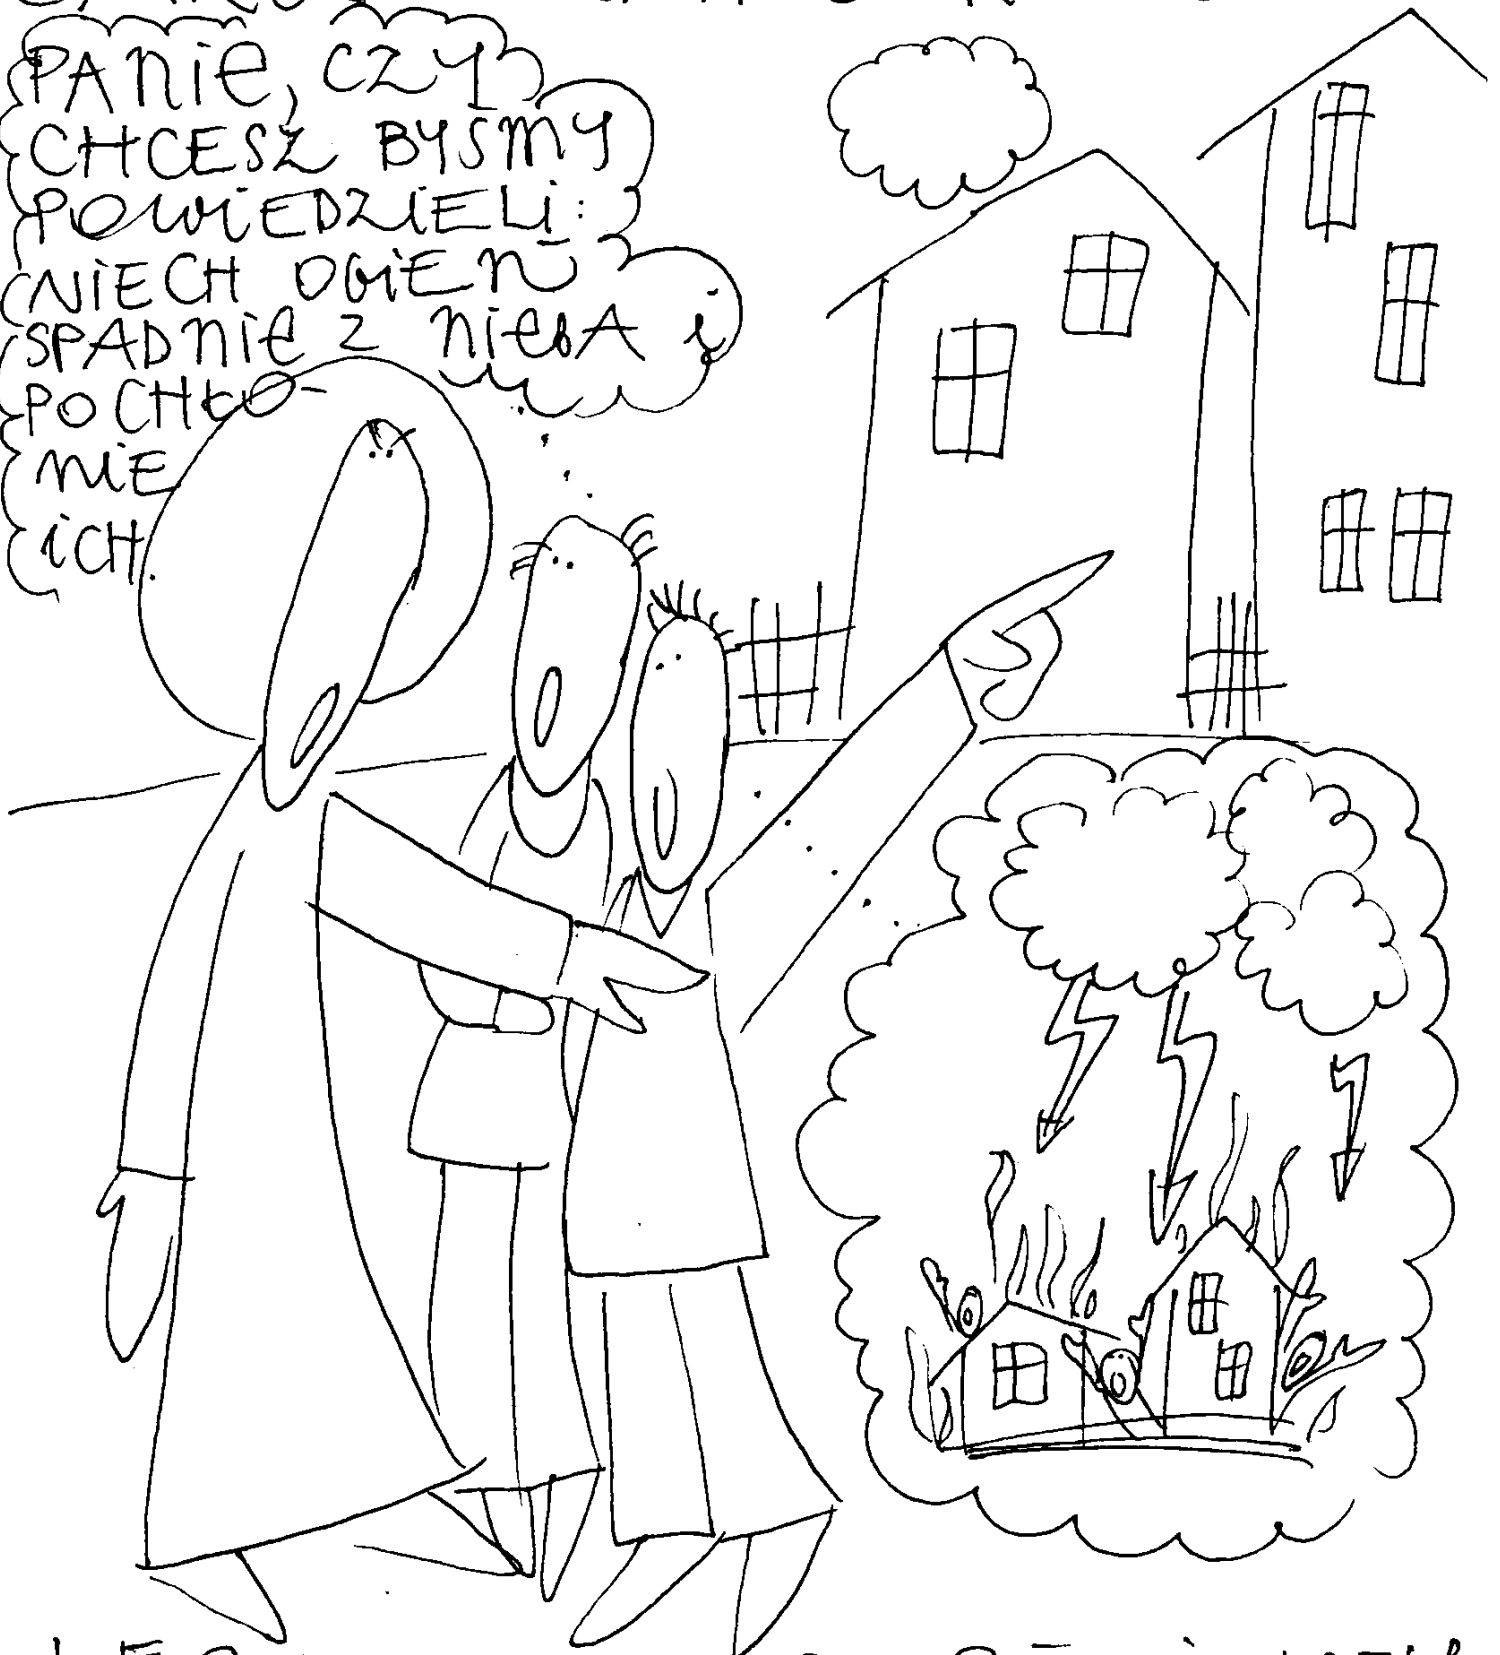 PANIE, CZY
CHCESZ BYŚMY
POWIEDZIELI:
NIECH OGIEŃ
SPADNIE Z NIEBA i
POCHŁO-
NIE
ICH.